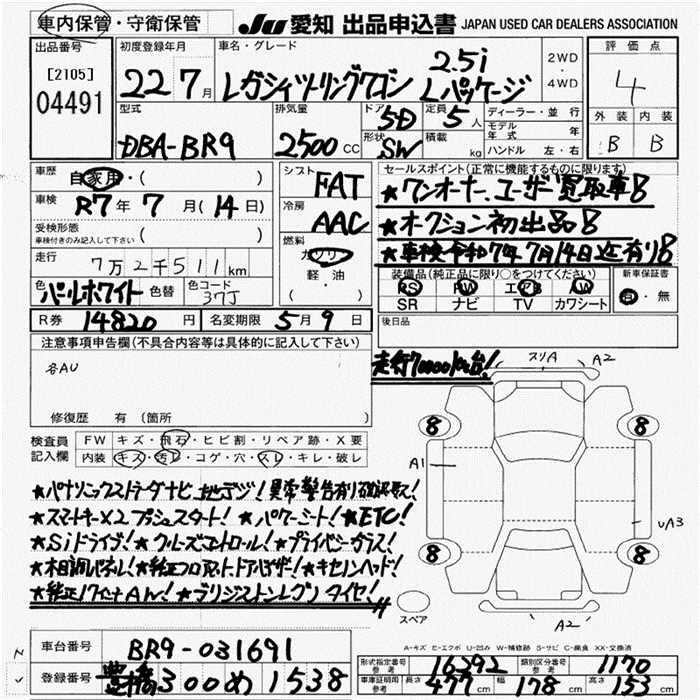 車内保管・守衛保管
JU 愛知 出品申込書 JAPAN USED CAR DEALERS ASSOCIATION
出品番号
[2105]
04491
初度登録年月
22 7月
車名・グレード
レガシィツーリングワゴン 2.5i Lパッケージ
2WD・4WD
評価点
4
外装 内装
B B
型式
DBA-BR9
排気量
2500 CC
ドア 5D
形状 SW
定員 5人
積載 kg
ディーラー・並行
モデル年式 年
ハンドル 左・右
車歴
自家用・( )
車検 R7年 7月(14日)
受検形態
車検付きのみ記入して下さい ( )
走行
7万2千511km
色 パールホワイト 色替 色コード 37J
シフト
FAT
冷房
AAC
燃料
ガソリン
軽油
・( )
セールスポイント(正常に機能するものに限ります)
★ワンオーナー、ユーザー買取車!!
★オークション初出品!!
★車検令和7年7月14日迄有り!!
装備品(純正品に限り○をつけてください)
PS PW エアB AW
SR ナビ TV カワシート
新車保証書
有・無
R券 14820円 名変期限 5月9日
後日品
注意事項申告欄(不具合内容等は具体的に記入して下さい)
各AU
修復歴 有 (箇所
走行70000km台!
スリA A2
8 8
A1
UA3
8 8
スペア
A2
検査員記入欄
FW キズ・飛石・ヒビ割・リペア跡・X要
内装 キズ・汚レ・コゲ・穴・スレ・キレ・破レ
★パナソニックストラーダナビ、地デジ!
★スマートキーX2プッシュスタート! ★パワーシート! ★ETC!
★Siドライブ! ★クルーズコントロール! ★プライバシーガラス!
★木目調パネル! ★純正フロアマット、ドアバイザー! ★キセノンヘッド!
★純正17インチAW! ★ブリジストンレグノタイヤ!
A-キズ E-エクボ U-凹み W-補修跡 S-サビ C-腐食 XX-交換済
車台番号 BR9-031691
登録番号 豊橋300め1538
形式指定番号参考 16292 類別区分番号参考 1170
車庫証明用参考 長さ 477cm 幅 178cm 高さ 153cm